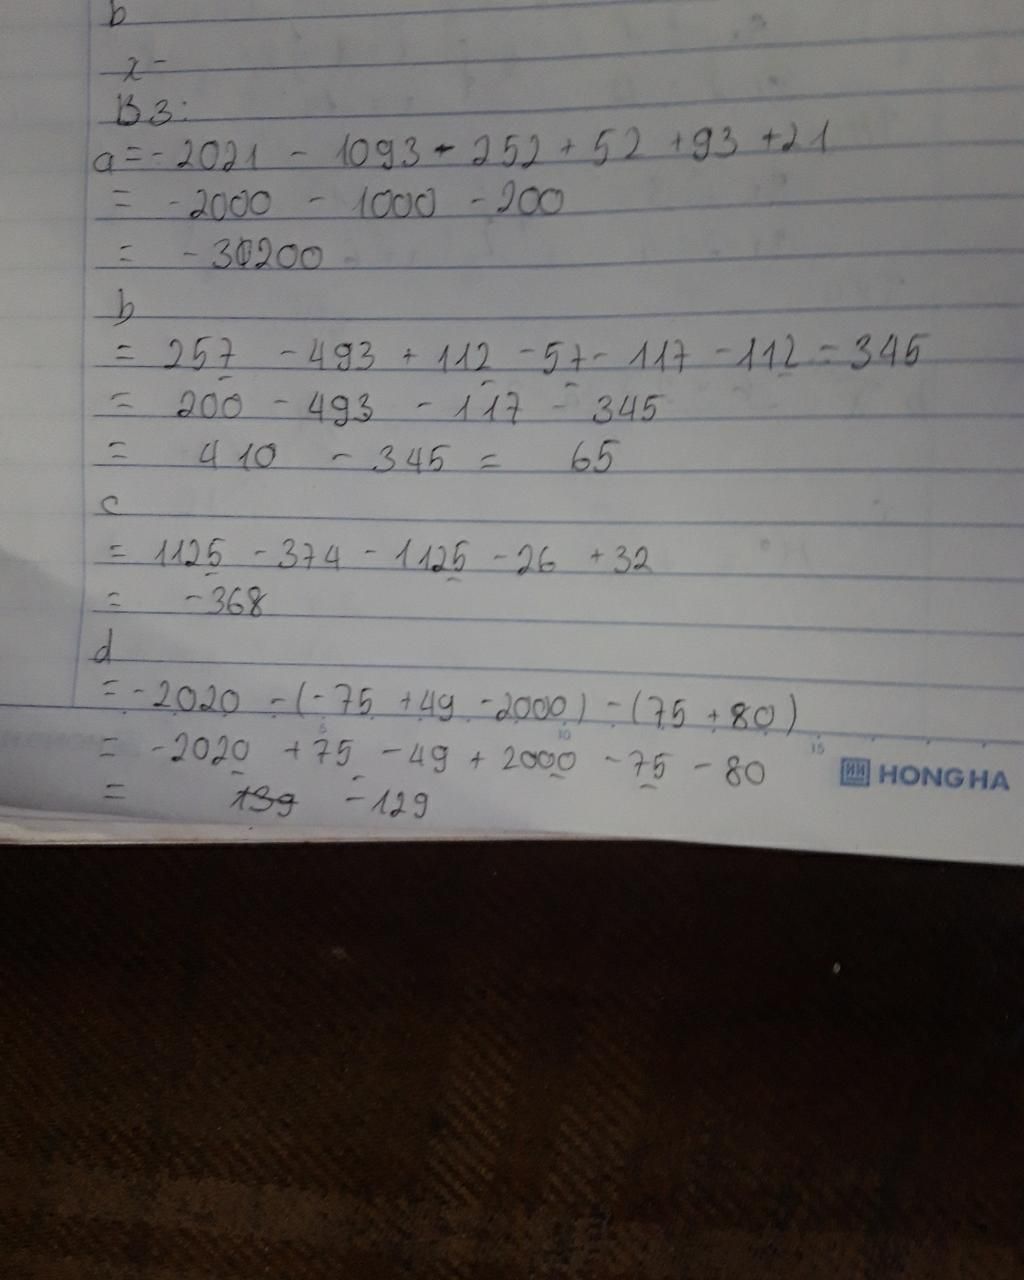 b
x -
B3:
a = - 2021 - 1093 - 252 + 52 + 93 + 21
= - 2000 - 1000 - 200
= - 30200
b
= 257 - 493 + 112 - 57 - 117 - 112 - 345
= 200 - 493 - 117 - 345
= 410 - 345 = 65
c
= 1125 - 374 - 1125 - 26 + 32
= - 368
d
= - 2020 - (- 75 + 49 - 2000) - (75 + 80)
5 10 15
= - 2020 + 75 - 49 + 2000 - 75 - 80
HONG HA
= 139 - 129